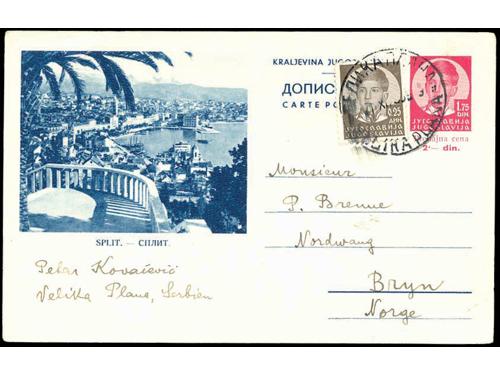 KRALJEVINA
ДОПИС
CARTE PO
0,25
ДИН.
ЈУГОСЛАВИЈА
JUGOSLAVIJA
1,75
DIN.
ЈУГОСЛАВИЈА
JUGOSLAVIJA
cena
2·— din.
SPLIT. — СПЛИТ.
Petar Kovačević
Velika Plana, Serbien
Monsieur
P. Brenne
Nordwang
Bryn
Norge